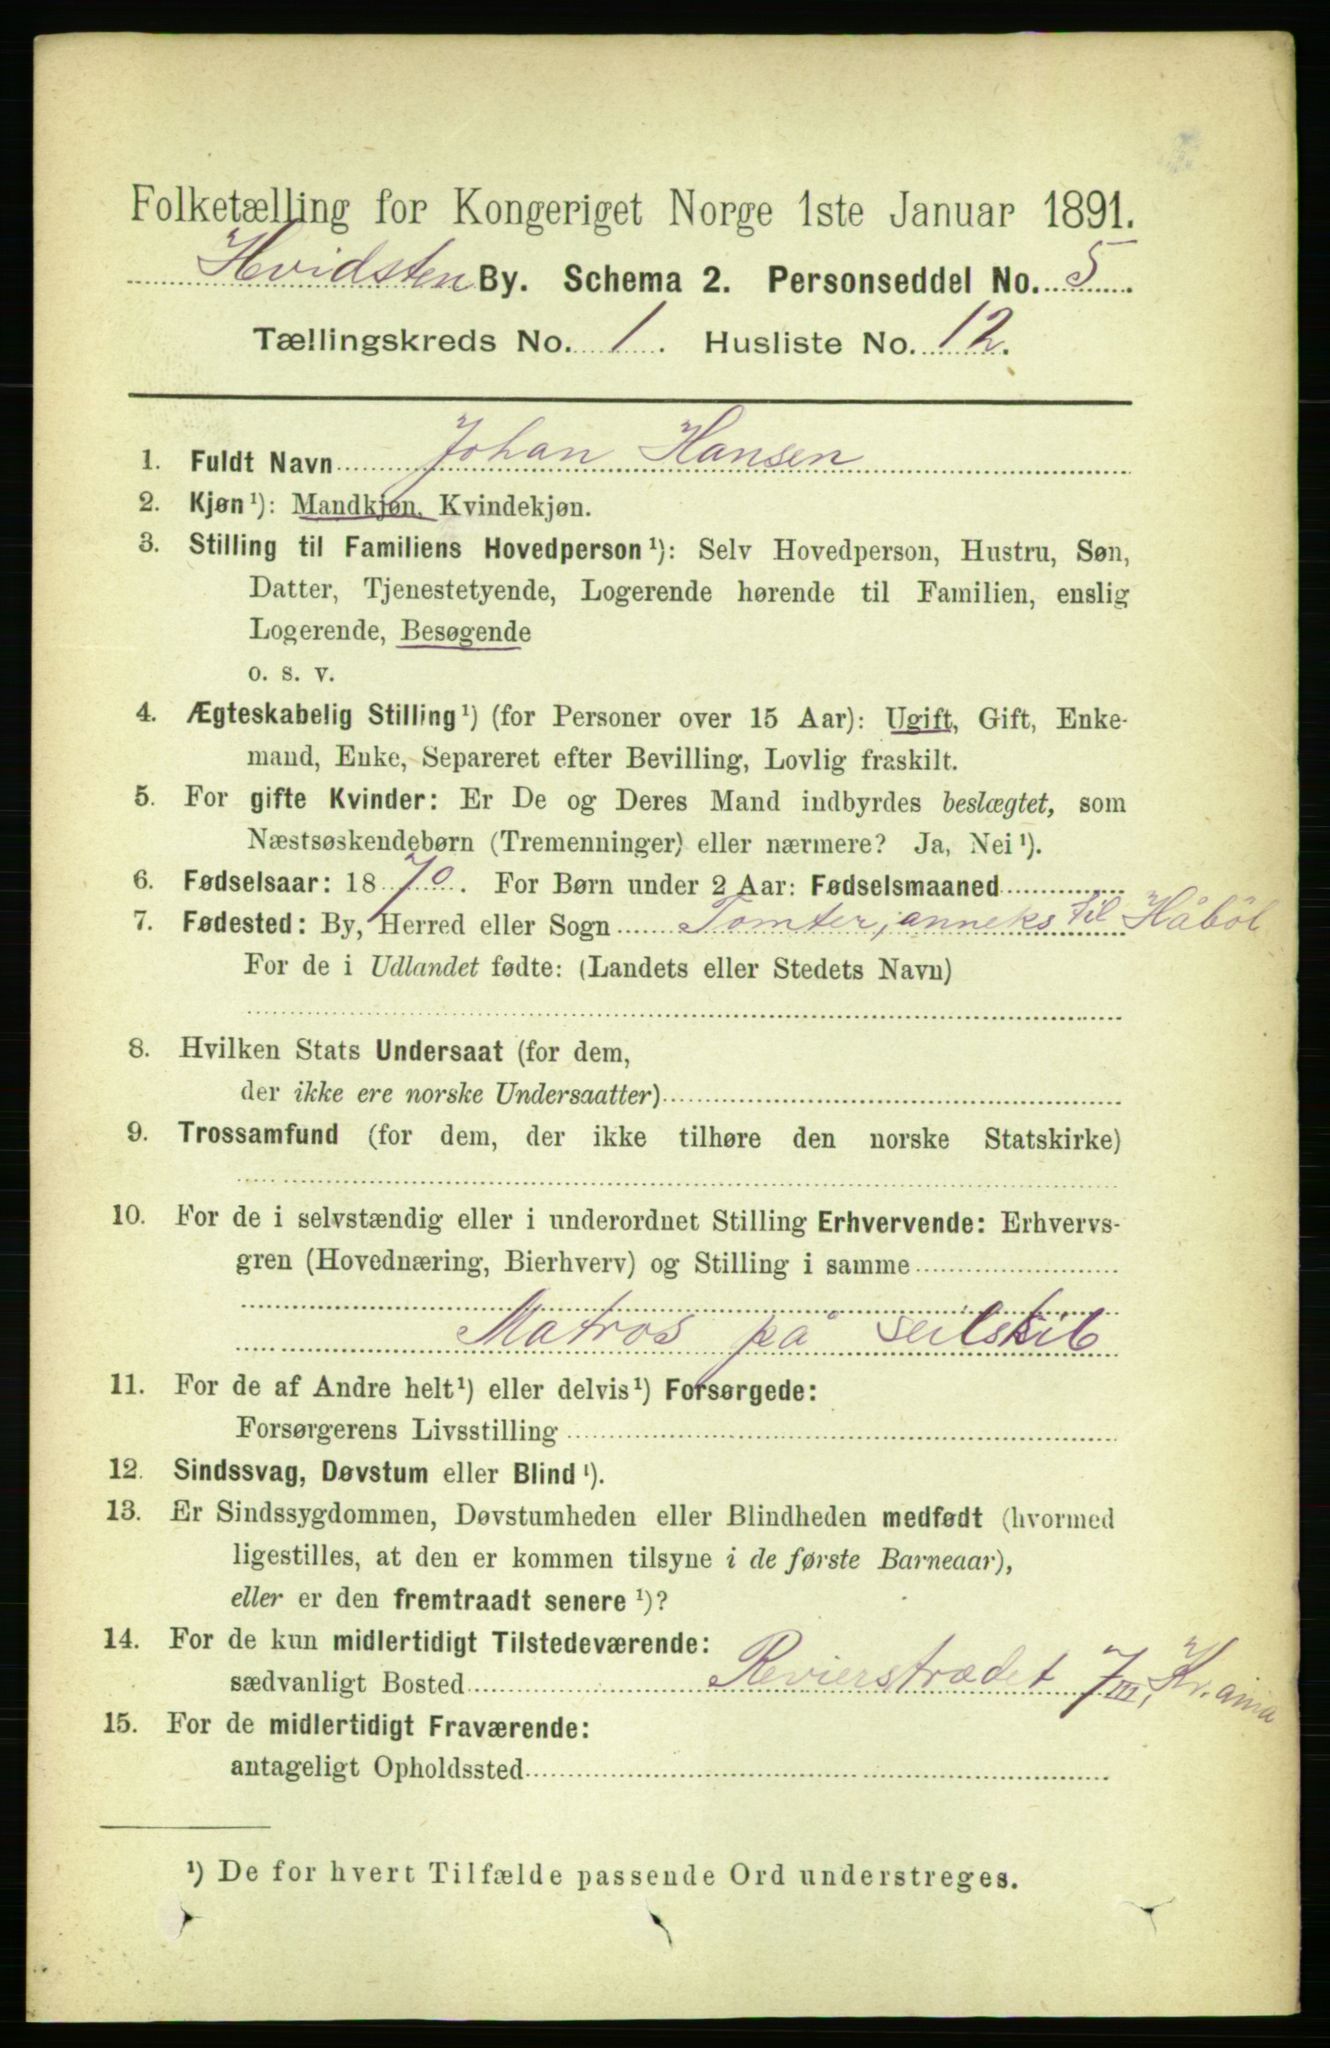 Folketælling for Kongeriget Norge 1ste Januar 1891.
Hvidsten By. Schema 2. Personseddel No. 5.
Tællingskreds No. 1. Husliste No. 12.
1. Fuldt Navn Johan Hansen
2. Kjøn¹): Mandkjøn, Kvindekjøn.
3. Stilling til Familiens Hovedperson¹): Selv Hovedperson, Hustru, Søn,
Datter, Tjenestetyende, Logerende hørende til Familien, enslig
Logerende, Besøgende
o. s. v.
4. Ægteskabelig Stilling¹) (for Personer over 15 Aar): Ugift, Gift, Enke-
mand, Enke, Separeret efter Bevilling, Lovlig fraskilt.
5. For gifte Kvinder: Er De og Deres Mand indbyrdes beslægtet, som
Næstsøskendebørn (Tremenninger) eller nærmere? Ja, Nei¹).
6. Fødselsaar: 1870. For Børn under 2 Aar: Fødselsmaaned
7. Fødested: By, Herred eller Sogn Tomter, anneks til Håböl
For de i Udlandet fødte: (Landets eller Stedets Navn)
8. Hvilken Stats Undersaat (for dem,
der ikke ere norske Undersaatter)
9. Trossamfund (for dem, der ikke tilhøre den norske Statskirke)
10. For de i selvstændig eller i underordnet Stilling Erhvervende: Erhvervs-
gren (Hovednæring, Bierhverv) og Stilling i samme
Matros på seilskib
11. For de af Andre helt¹) eller delvis¹) Forsørgede:
Forsørgerens Livsstilling
12. Sindssvag, Døvstum eller Blind¹).
13. Er Sindssygdommen, Døvstumheden eller Blindheden medfødt (hvormed
ligestilles, at den er kommen tilsyne i de første Barneaar),
eller er den fremtraadt senere¹)?
14. For de kun midlertidigt Tilstedeværende:
sædvanligt Bosted Revierstrædet 7 III, Kr.ania
15. For de midlertidigt Fraværende:
antageligt Opholdssted
¹) De for hvert Tilfælde passende Ord understreges.